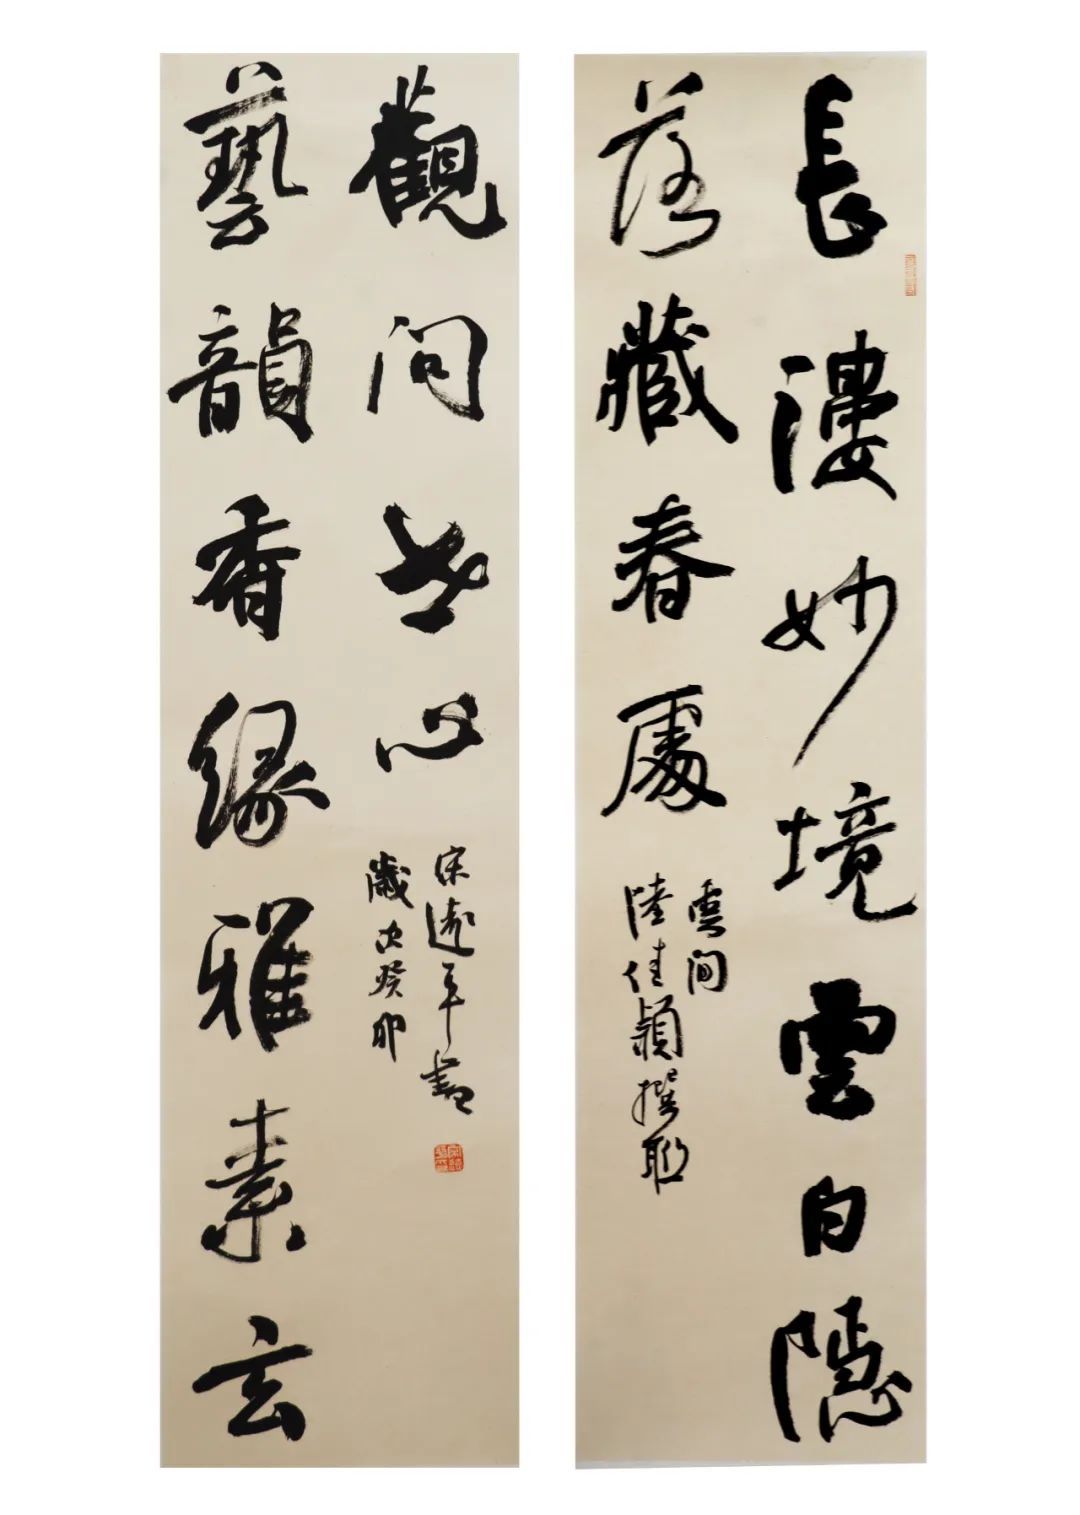 長漊妙境雲白隱
落藏春處
雲間
陸佳穎撰聯
藝韻香緣雅素玄
觀問世心
歲次癸卯
宋遠平書